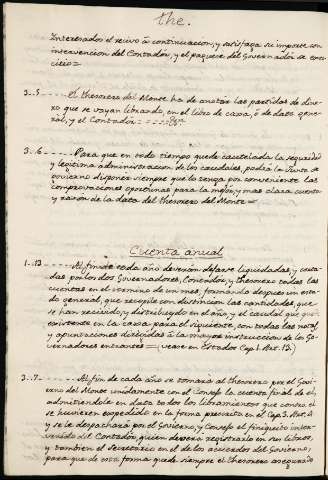 the.
Interesados el recivo à continuacion, y satisfaga su importe con
intervencion del Contador, y el paguese del Governador se
3..5 El thesorero del Monte ha de anotar las partidas de dine-
ro que se vayan librando, en el libro de caxa, ó de data gene-
ral, y el Contador
3..6 Para que en todo tiempo quede cautelada la seguridad
y legitima administracion de los caudales, podrá la Junta de
govierno disponer siempre que lo tenga por conveniente las
comprovaciones oportunas para la mejor, y mas clara cuenta
y razon de la data del thesorero del Monte=
Cuenta anual
1..13 Al fin de cada año deverán dejarse liquidadas, y corta-
das por los dos Governadores, Contador, y thesorero todas las
cuentas en el termino de un mes, formando despues un esta-
do general, que recopile con distincion las cantidades que
se han recivido, y distribuydo en el año, y el caudal que quede
existente en la caxa para el siguiente, con todas las notas,
y apuntaciones dirigidas à la mayor instruccion de los Go-
vernadores entrantes= (vease en Estados Cap. 1. Art. 13.)
3..7 Al fin de cada año se tomará al thesorero por el Govi-
erno del Monte unidamente con el Consejo la cuenta final de el
admitiendole en data todos los libramientos que contra el
se huvieren expedido en la forma prescrita en el Cap. 3. Art. 4
y se le despachará por el Govierno, y Consejo el finiquito inter-
venido del Contador, quien deverá registrarlo en sus libros,
y tambien el Secretario en el de los acuerdos del Govierno,
para que de esta forma quede siempre el thesorero asegurado